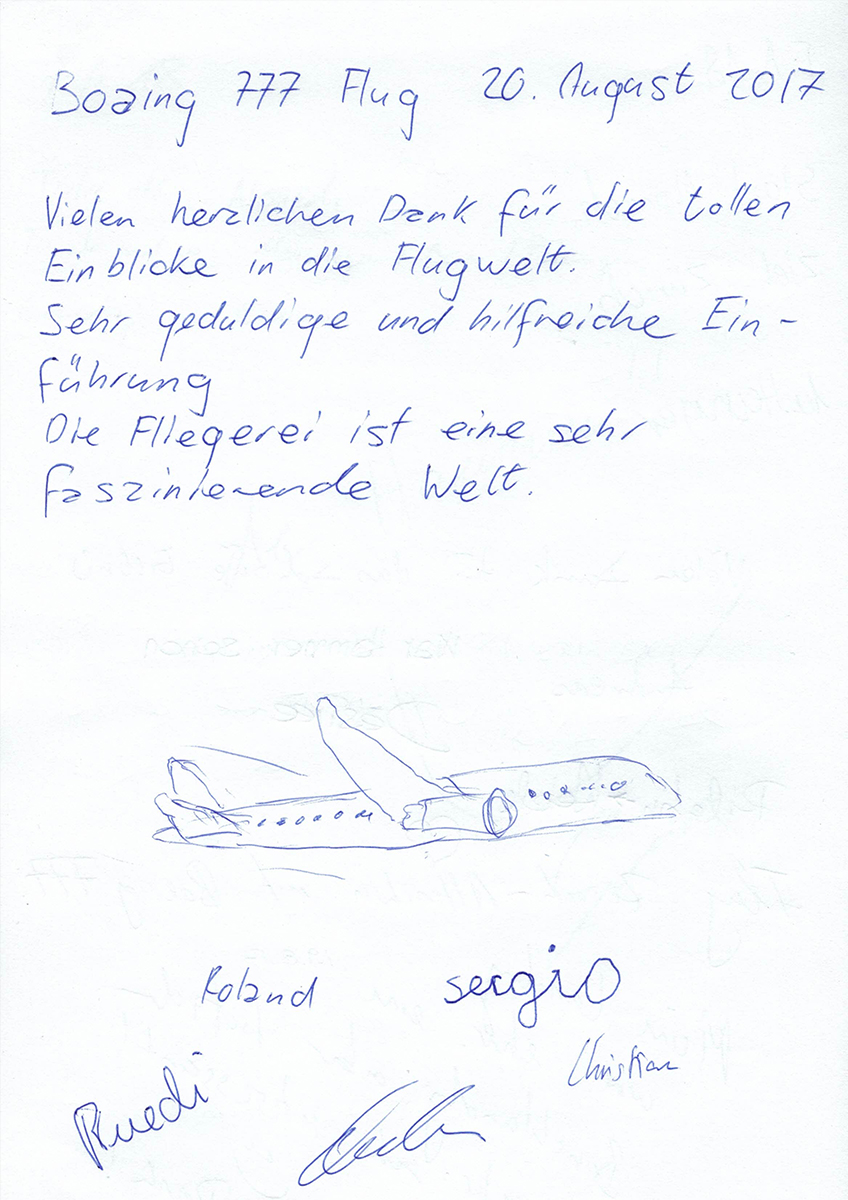 Boeing 777 Flug 20. August 2017
Vielen herzlichen Dank für die tollen
Einblicke in die Flugwelt.
Sehr geduldige und hilfreiche Ein-
führung
Die Fliegerei ist eine sehr
faszinierende Welt.
Roland sergio
Christian
Ruedi